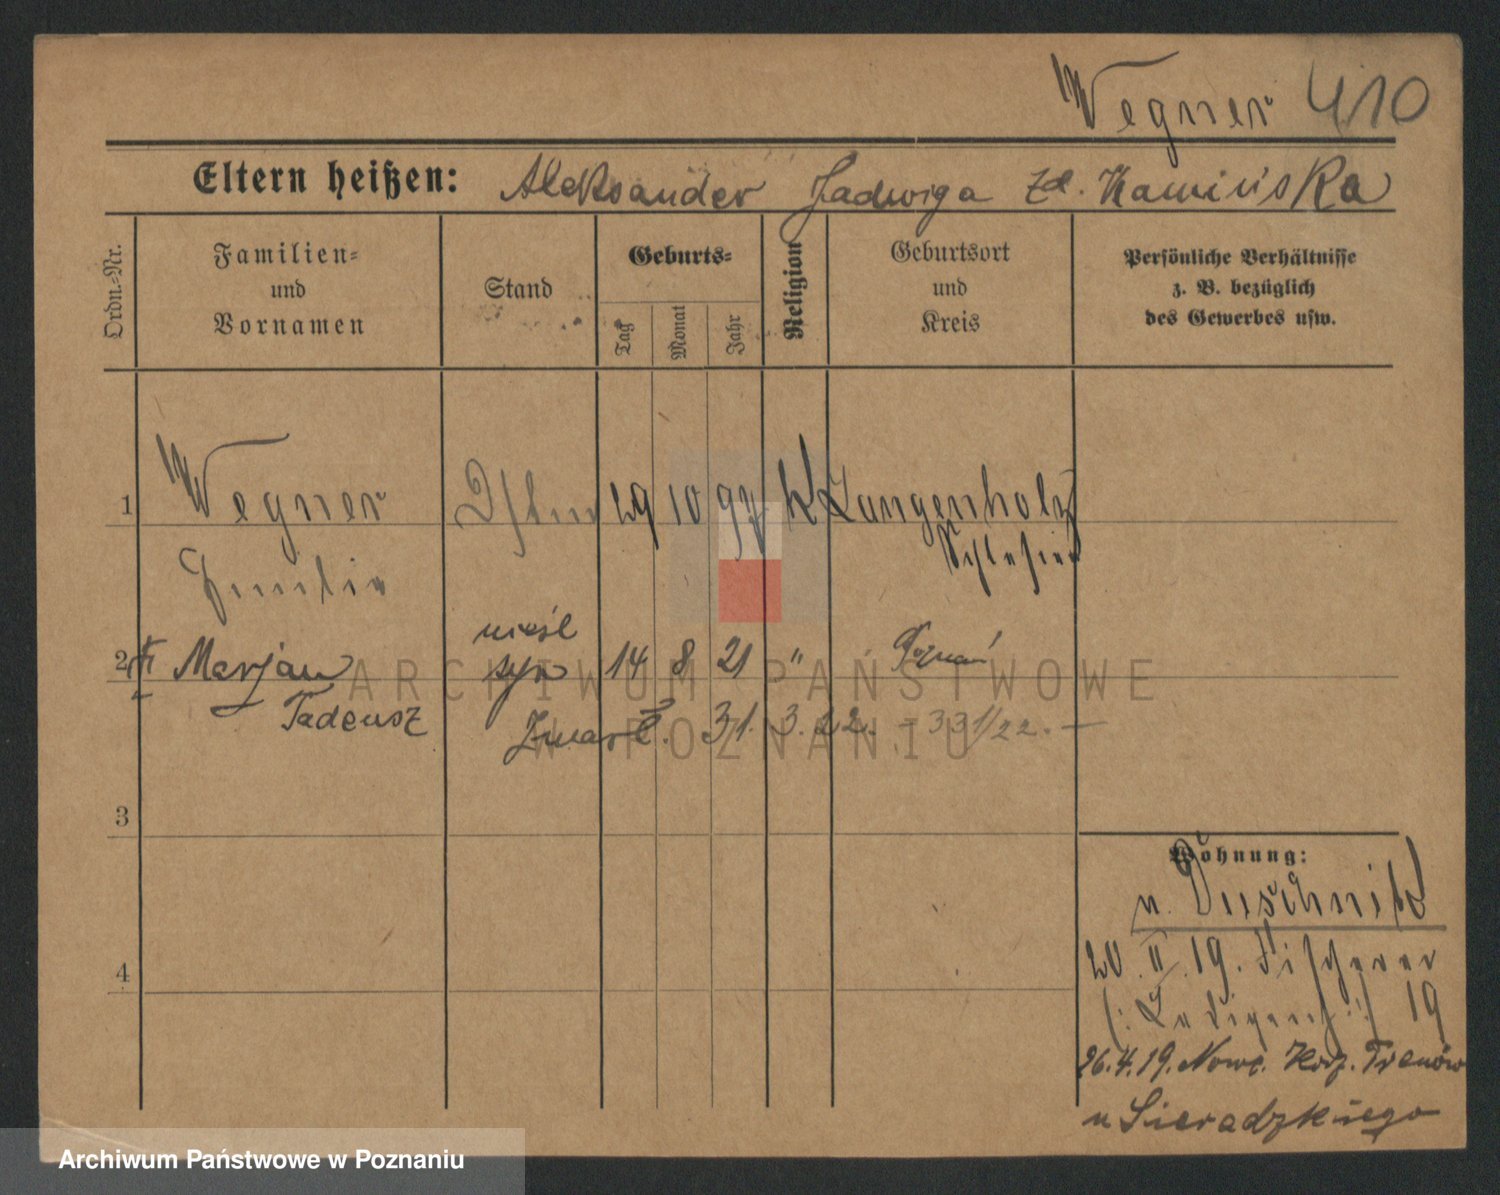 Wegner 410
Eltern heißen: Aleksander Jadwiga zd. Kamińska
Ordn.-Nr.
Familien-
und
Vornamen
Stand
Geburts-
Tag
Monat
Jahr
Religion
Geburtsort
und
Kreis
Persönliche Verhältnisse
z. B. bezüglich
des Gewerbes usw.
1 Wegner 29 10 97 k Langenholz
Schlesien
2 Marjan nieśl syn 14 8 21 " Poznań
Tadeusz
Zmarł. 31. 3. 22. – 331/22. –
3
4
Wohnung:
n. Duschnik
20. II. 19. Fischerei
19
26.4.19. Nowe
u Sieradzkiego
ARCHIWUM PAŃSTWOWE
W POZNANIU
Archiwum Państwowe w Poznaniu